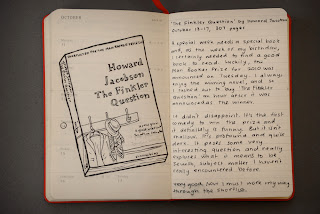 OCTOBER
Howard
Jacobson
The Finkler
Question
'The Finkler Question' by Howard Jacobson
October 13-17, 307 pages
A special week needs a special book
and, as the week of my birthday,
I certainly needed to find a good
book to read. Luckily, the
Man Booker Prize for 2010 was
announced on Tuesday. I always
enjoy the winning novel, and so
I rushed out to buy 'The Finkler
Question' an hour after it was
announced as the winner.
It didn't disappoint. It's the first
comedy to win the prize and
it definitely is funny. But it isn't
slapstick, it's profound and quite
dark. It poses some very
interesting question and really
explores what it means to be
Jewish, subject matter I haven't
really encountered before.
Very good. Now I must work my way
through the shortlist.